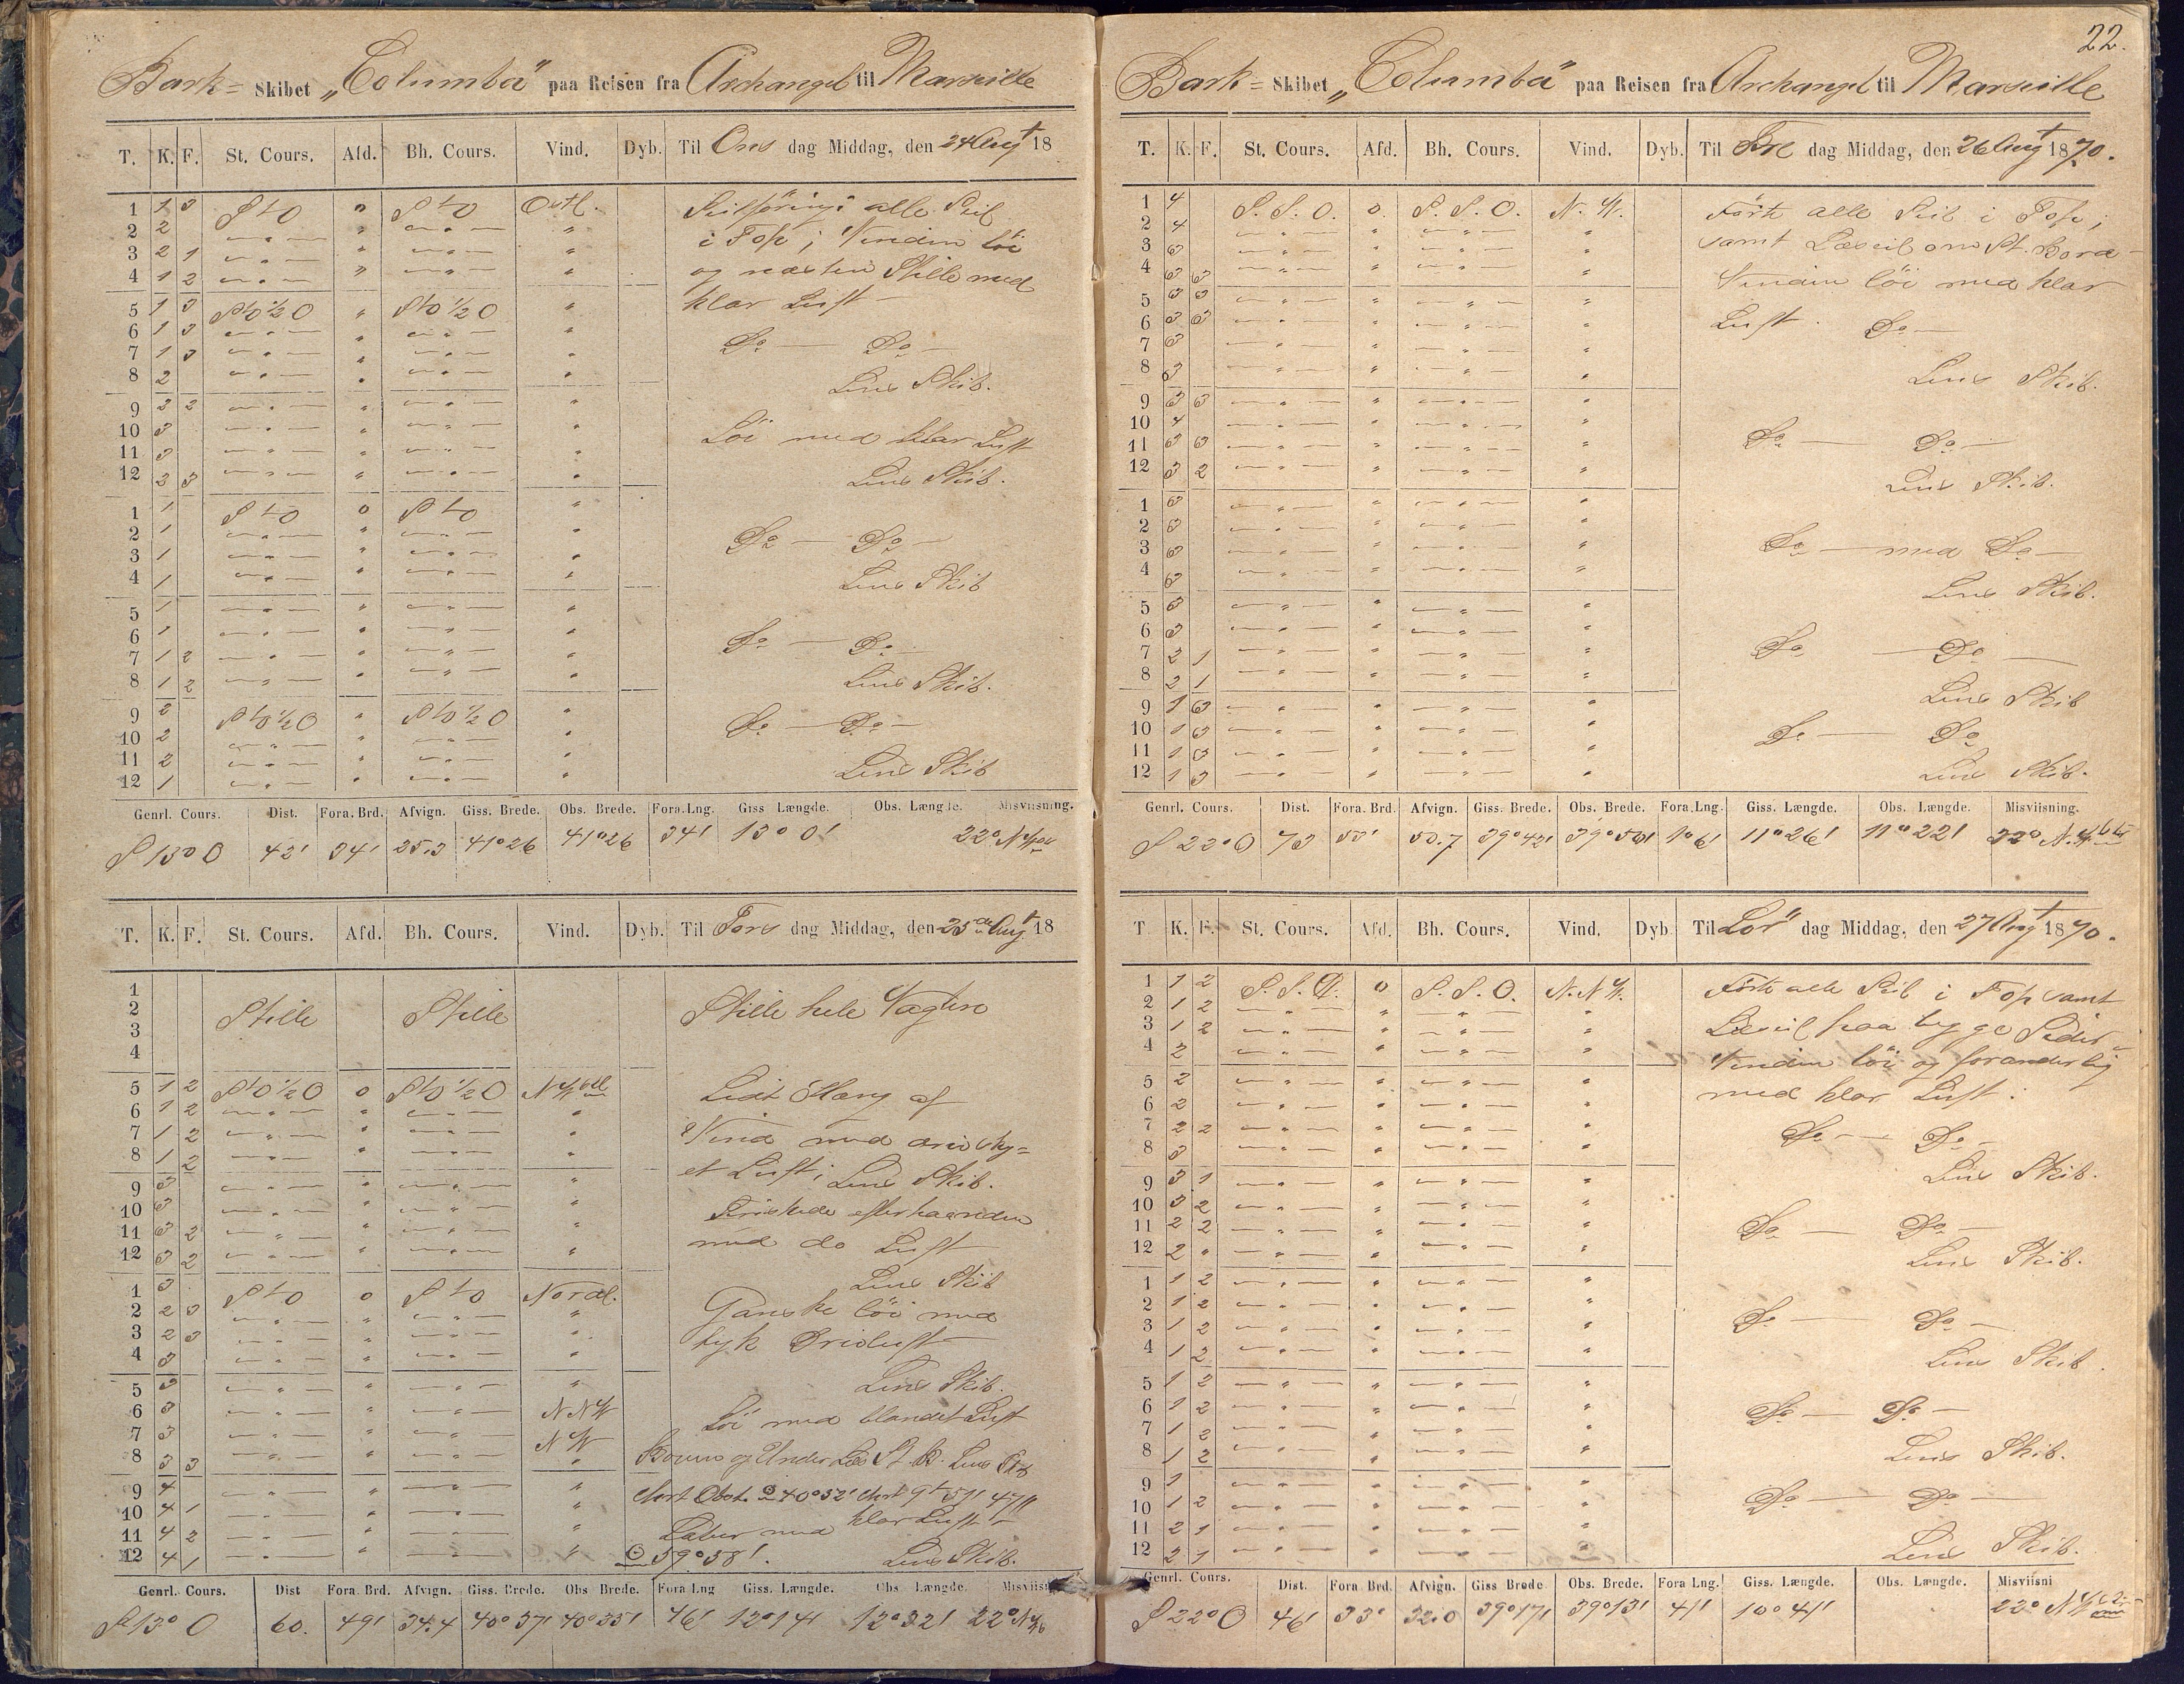 Bark= Skibet „Columba" paa Reisen fra Archangel til Marseille
T. K. F. St. Cours. Afd. Bh. Cours. Vind. Dyb. Til Ons dag Middag, den 24 Augt 18
1 1 3 StO " StO Ostl. Seilföring: alle Seil
2 2 " " i Top; Vinden löi
3 2 1 " " og næsten Stille med
4 1 2 " " klar Luft
5 1 3 StO ½ O " StO ½ O "
6 1 3 " "
7 1 3 " " Do — Do —
8 2 " " Lens Skib.
9 2 2 " "
10 3 " " Löi med klar Luft
11 3 " "
12 2 3 " " Lens Skib.
1 1 StO o StO "
2 1 " " Do — Do —
3 1 " "
4 1 " " Lens Skib
5 1 " "
6 1 " " Do — Do —
7 1 2 " "
8 1 2 " " Lens Skib.
9 2 StO ½ O " StO ½ O " Do — Do —
10 2 " "
11 2 " "
12 1 " " Lens Skib
Genrl. Cours. Dist. Fora. Brd. Afvign. Giss. Brede. Obs. Brede. Fora. Lng. Giss Længde. Obs. Længde. Misviisning.
S 13° O 42' 34' 25.3 41°26 41°26 34' 13° 0' 22° N
T. K. F. St. Cours. Afd. Bh. Cours. Vind. Dyb. Til Tors dag Middag, den 25de Augt 18
1
2 Stille Stille Stille hele Vagten
3
4
5 1 2 StO ½ O o StO ½ O NWtl Lidt Slang af
6 1 2 " "
7 1 2 " " Vind med
8 1 2 " " et Luft; Lens Skib.
9 3 " "
10 3 " " Friskede efterhaanden
11 3 2 " " med do Luft
12 3 2 " "
1 3 StO o StO Nordl. Lens Skib
2 2 3 " " Ganske löi med
3 2 3 " " tyk Luft
4 3 " "
5 3 " " Lens Skib.
6 3 " NNW Löi med blandet Luft
7 3 " NW
8 3 3 " " Bouen og Under Læs St. B. Lens Skib
9 4 " " 40°52' 9t 51' 47"
10 4 1 " " Laber med klar Luft
11 4 2 " "
12 4 1 " " 59°58'. Lens Skib.
Genrl. Cours. Dist Fora. Brd. Afvign. Giss. Brede. Obs Brede. Fora Lng Giss. Længde. Obs Længde. Misviisn
S 13° O 60. 49' 34.4 40° 37' 40° 35' 46' 12°14' 12°32' 22° N
22.
Bark= Skibet „Columba" paa Reisen fra Archangel til Marseille
T. K. F. St. Cours. Afd. Bh. Cours. Vind. Dyb. Til Fre dag Middag, den 26 Augt 1870.
1 4 S.S.O. o. S.S.O. N.W. Förte alle Seil i Top;
2 4 " " samt Læseil om St. Bord
3 3 " "
4 3 3 " " Vinden löi med klar
5 3 3 " "
6 3 3 " " Luft. Do —
7 3 " "
8 3 " " Lens Skib.
9 3 3 " "
10 4 " "
11 3 3 " " Do — Do —
12 3 2 " " Lens Skib.
1 3 " "
2 3 " "
3 3 " " Do — med Do —
4 3 " "
5 3 " " Lens Skib.
6 3 " "
7 2 1 " " Do — Do —
8 2 1 " "
9 1 3 " " Lens Skib
10 1 3 " " Do — Do
11 1 3 " "
12 1 3 " " Lens Skib.
Genrl. Cours. Dist. Fora. Brd. Afvign. Giss. Brede. Obs. Brede. Fora. Lng. Giss. Længde. Obs. Længde. Misviisning.
S 22° O 73 53' 50.7 39°42' 39°50' 1°6' 11°26' 11°22' 22° N.W.
T K. F. St. Cours. Afd. Bh. Cours. Vind. Dyb Til Lör dag Middag, den 27 Augt 1870.
1 1 2 S.S.O. o S.S.O. N.N.W. Förte alle Seil i Top samt
2 1 2 " "
3 1 2 " " Læseil paa begge Sider
4 2 " " Vinden löi og foranderlig
5 2 " "
6 2 " " med klar Luft.
7 2 2 " " Do — Do —
8 3 " "
9 3 1 " " Lens Skib.
10 3 2 " "
11 2 2 " " Do — Do —
12 2 " " Lens Skib.
1 1 2 " "
2 1 2 " "
3 1 2 " " Do — Do —
4 1 2 " " Lens Skib.
5 1 2 " "
6 1 2 " " Do — Do —
7 1 2 " "
8 1 2 " " Lens Skib.
9 1 " "
10 1 2 " " Do — Do —
11 2 1 " "
12 2 1 " " Lens Skib.
Genrl. Cours. Dist. Fora Brd. Afvign. Giss Brede Obs. Brede. Fora Lng. Giss. Længde. Obs. Længde. Misviisni
S 22° O 46' 33' 32.0 39°17' 39°13' 41' 10° 41' 22° NW